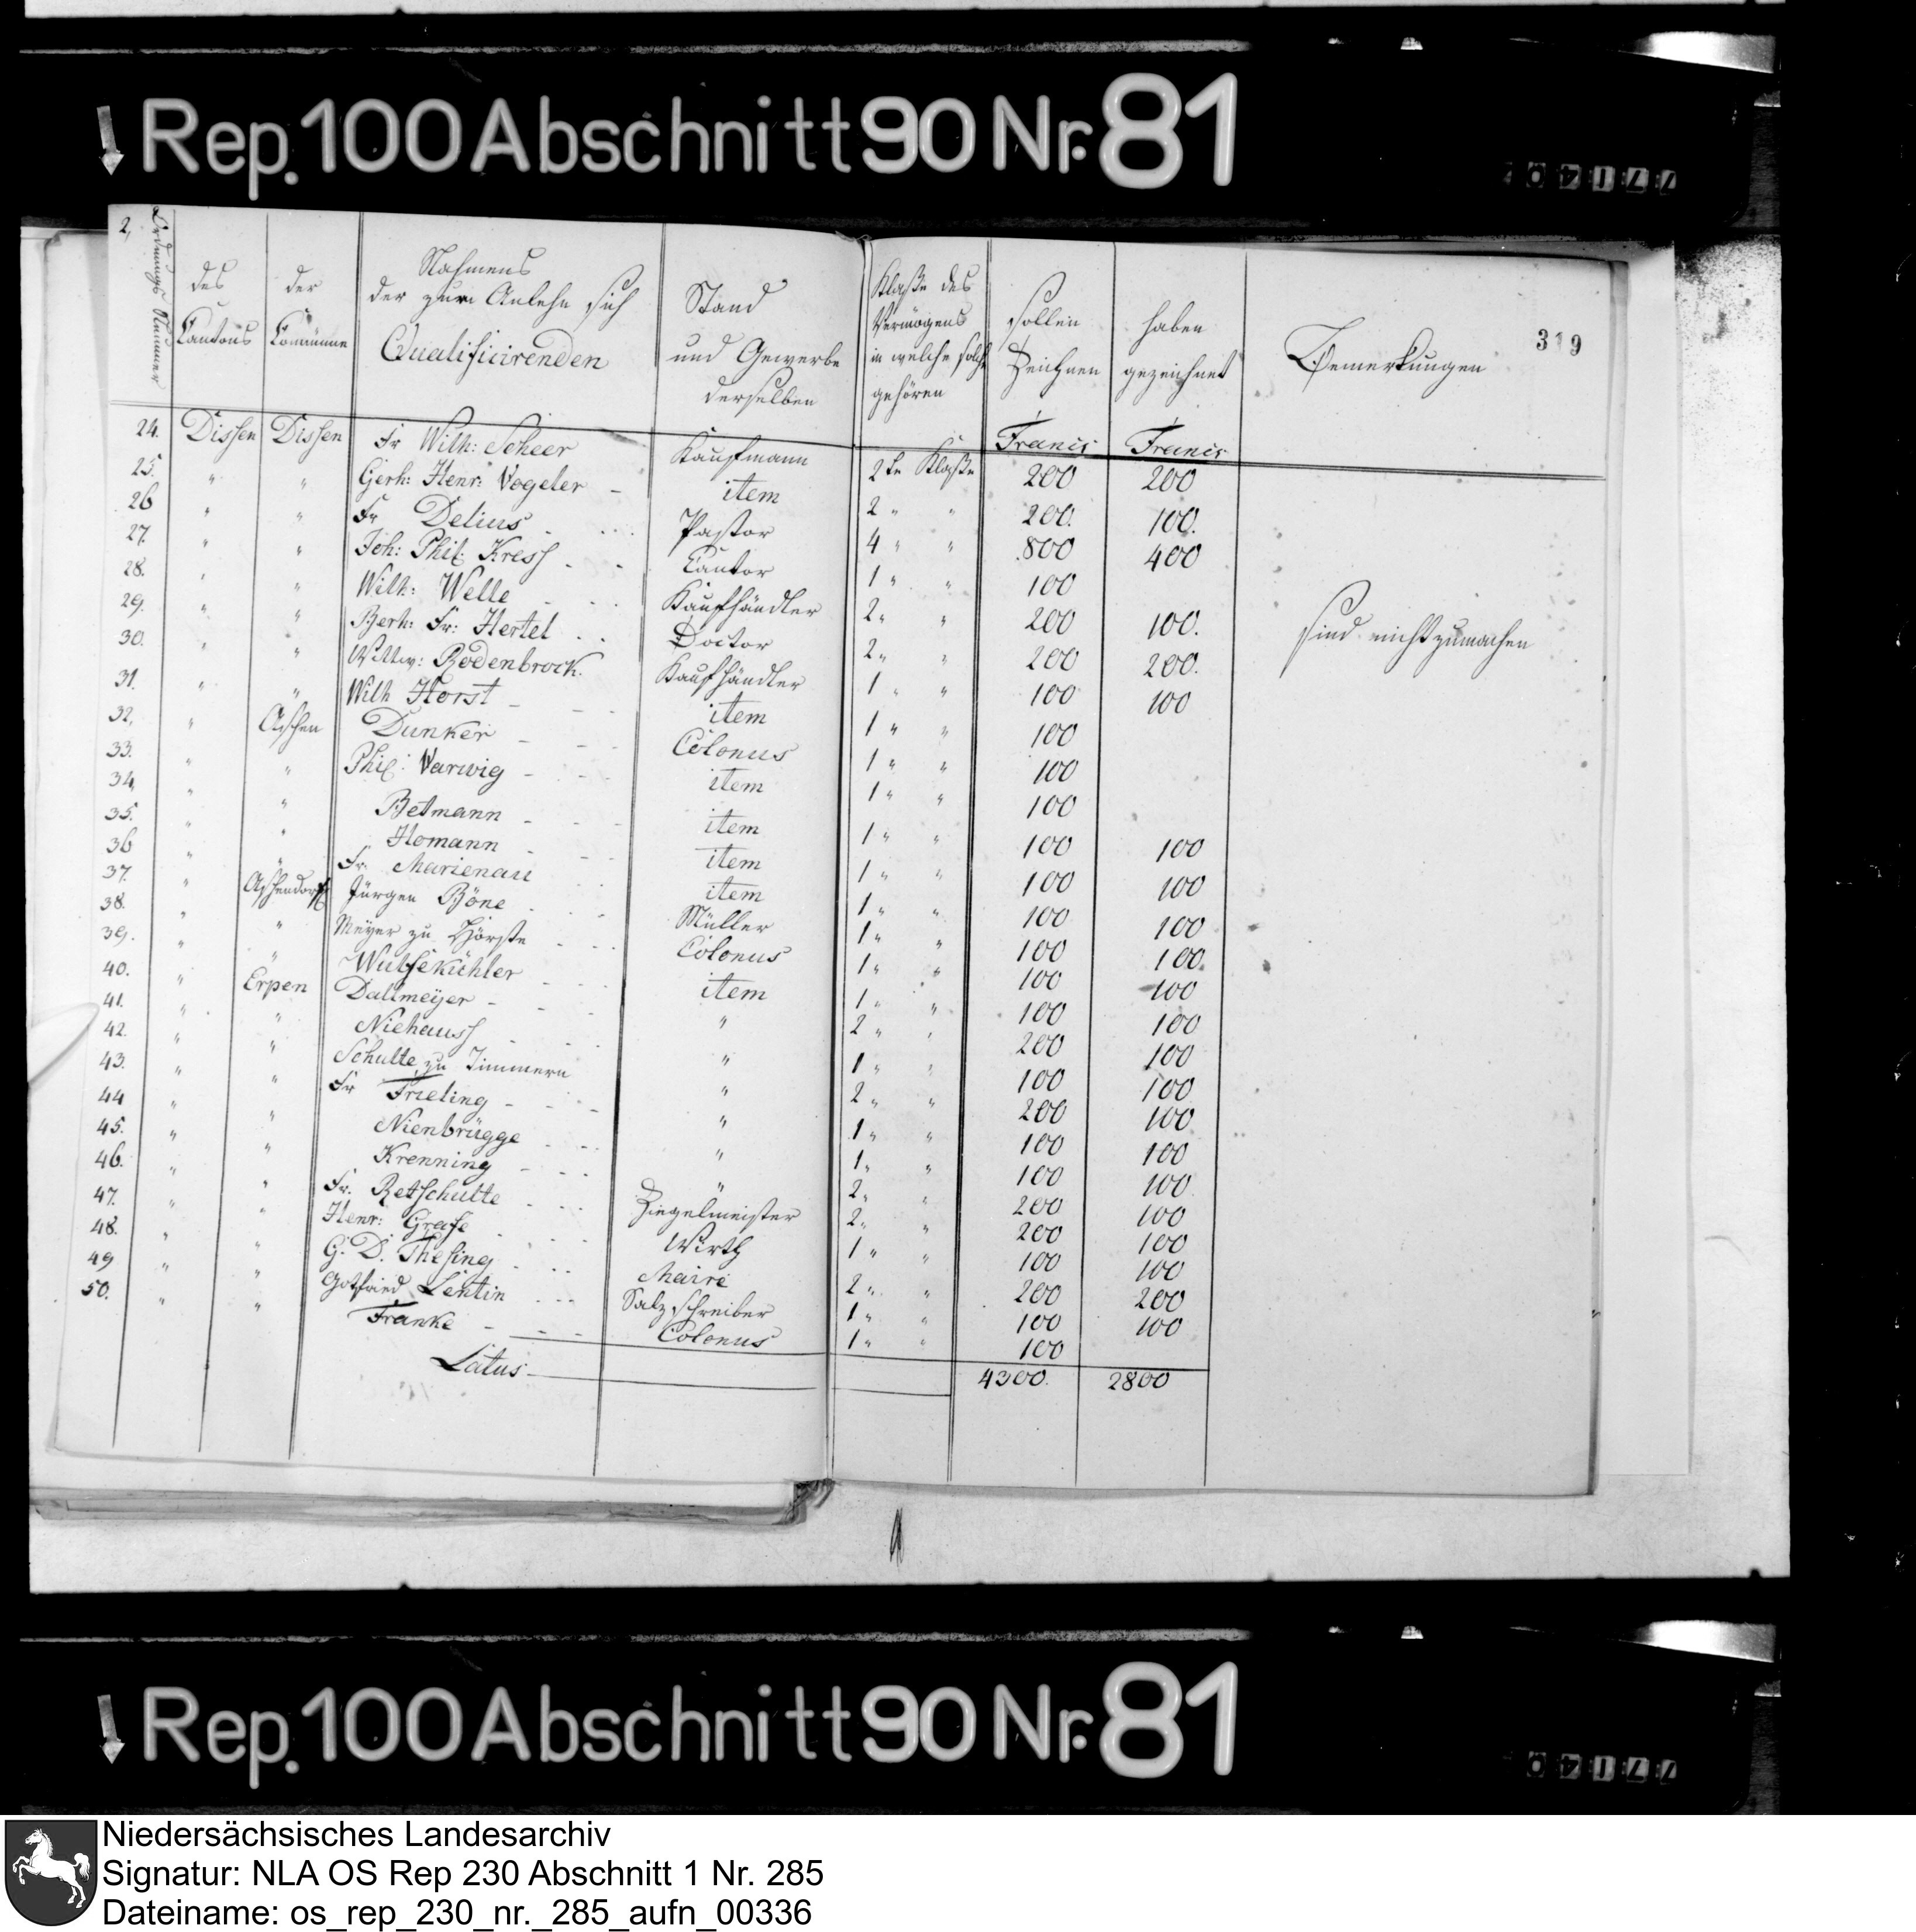 Rep. 100 Abschnitt 90 Nr. 81
2,
319
Ordnungs Nummer
des Cantons
der Commüne
Nahmens
der zum Anlehn sich
Qualificirenden
Stand
und Gewerbe
derselben
Klaße des
Vermögens
in welche solche
gehören
sollen
Zeichnen
haben
gezeichnet
Bemerkungen
Francs Francs
24. Dissen Dissen Fr Wilh: Scheer Kaufmann 2te Klaße 200 200
25. " " Gerh: Henr: Vogeler item 2 " " 200. 100.
26 " " Fr Delius Pastor 4 " " 800 400
27. " " Joh: Phil: Kress Cantor 1 " " 100
28. " " Wilh: Welle Kaufhändler 2 " " 200 100.
sind nicht zu machen
29. " " Berh: Fr: Hertel Doctor 2 " " 200 200.
30. " " Wittw: Rodenbrock. Kaufhändler 1 " " 100 100
31. " " Wilh Horst item 1 " " 100
32, " Aschen Dunker Colonus 1 " " 100
33. " " Phil: Varwig item 1 " " 100
34, " " Betmann item 1 " " 100 100
35. " " Homann item 1 " " 100 100
36 " " Fr. Marienau item 1 " " 100 100
37. " Aschendorf Jürgen Böne Müller 1 " " 100 100.
38. " " Meyer zu Hörste Colonus 1 " " 100 100
39. " " Wulfekühler item 1 " " 100 100
40. " Erpen Dallmeyer " 2 " " 200 100
41. " " Niehauss " 1 " " 100 100
42. " " Schulte zu Timmern " 2 " " 200 100
43. " " Fr Frieling " 1 " " 100 100
44 " " Nienbrügge " 1 " " 100 100
45. " " Krenning " 2 " " 200 100
46. " " Fr. Retschulte Ziegelmeister 2 " " 200 100
47. " " Henr: Grafe Wirth 1 " " 100 100
48. " " G. D. Thesing Maire 2 " " 200 200
49 " " Gotfried Lentin Salzschreiber 1 " " 100 100
50. " " Franke Colonus 1 " " 100
Latus 4300. 2800
Rep. 100 Abschnitt 90 Nr. 81
Niedersächsisches Landesarchiv
Signatur: NLA OS Rep 230 Abschnitt 1 Nr. 285
Dateiname: os_rep_230_nr._285_aufn_00336